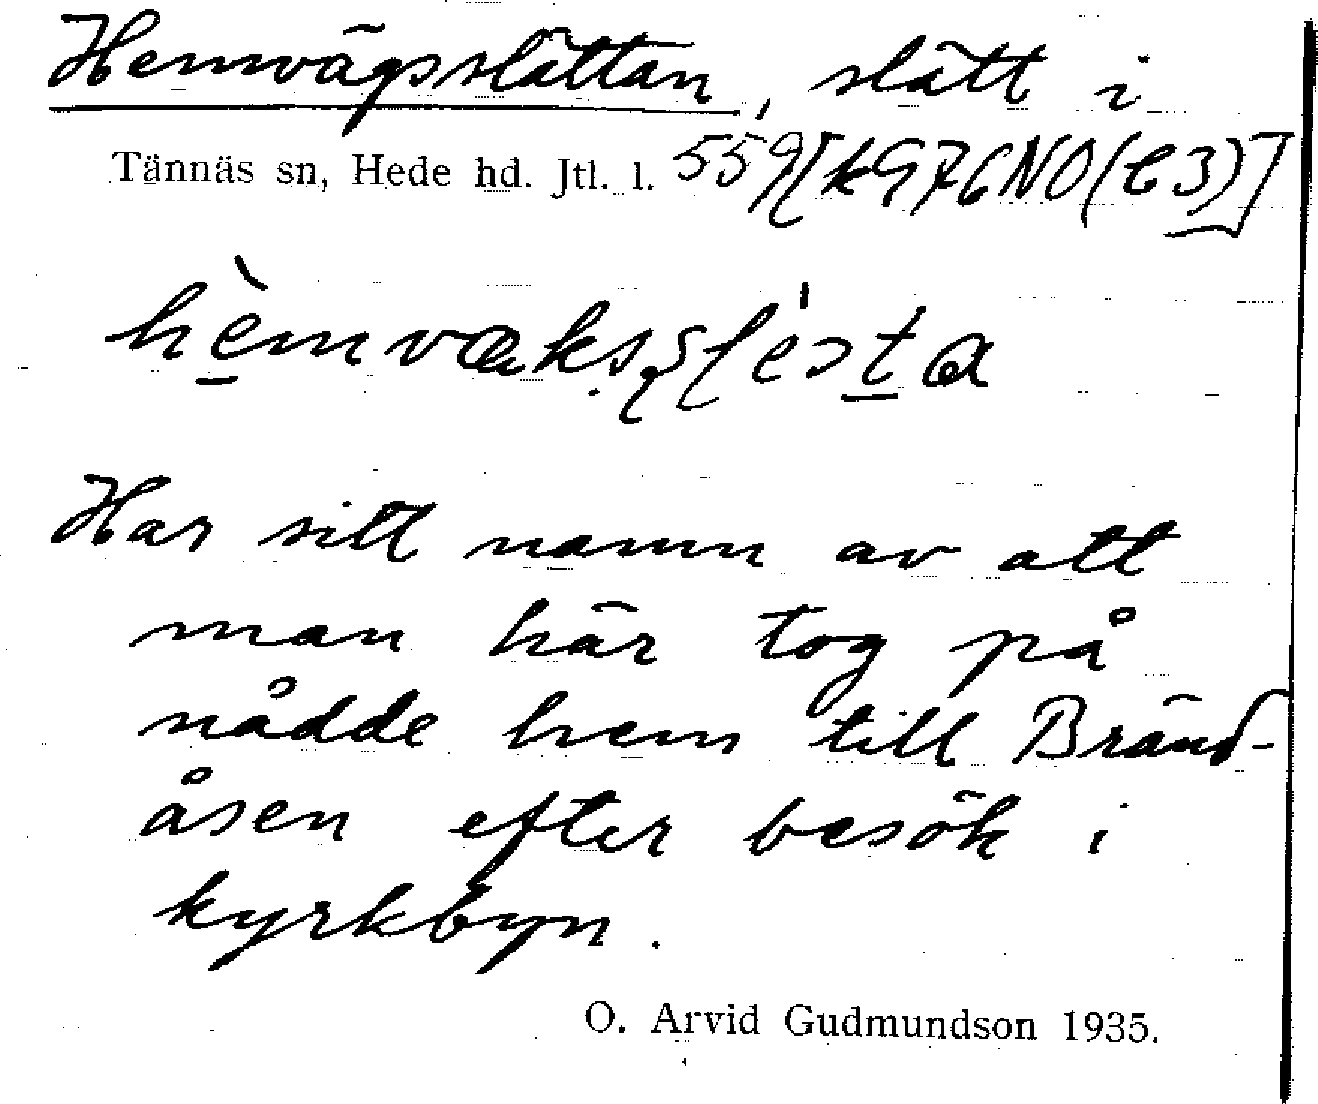 Hemvägsslåttan, slått i
Tännäs sn, Hede hd. Jtl. l. 559[k976NO(C3)]
Har sitt namn av att
man här tog på
nådde hem till Bränd-
åsen efter besök i
kyrkbyn.
O. Arvid Gudmundson 1935.